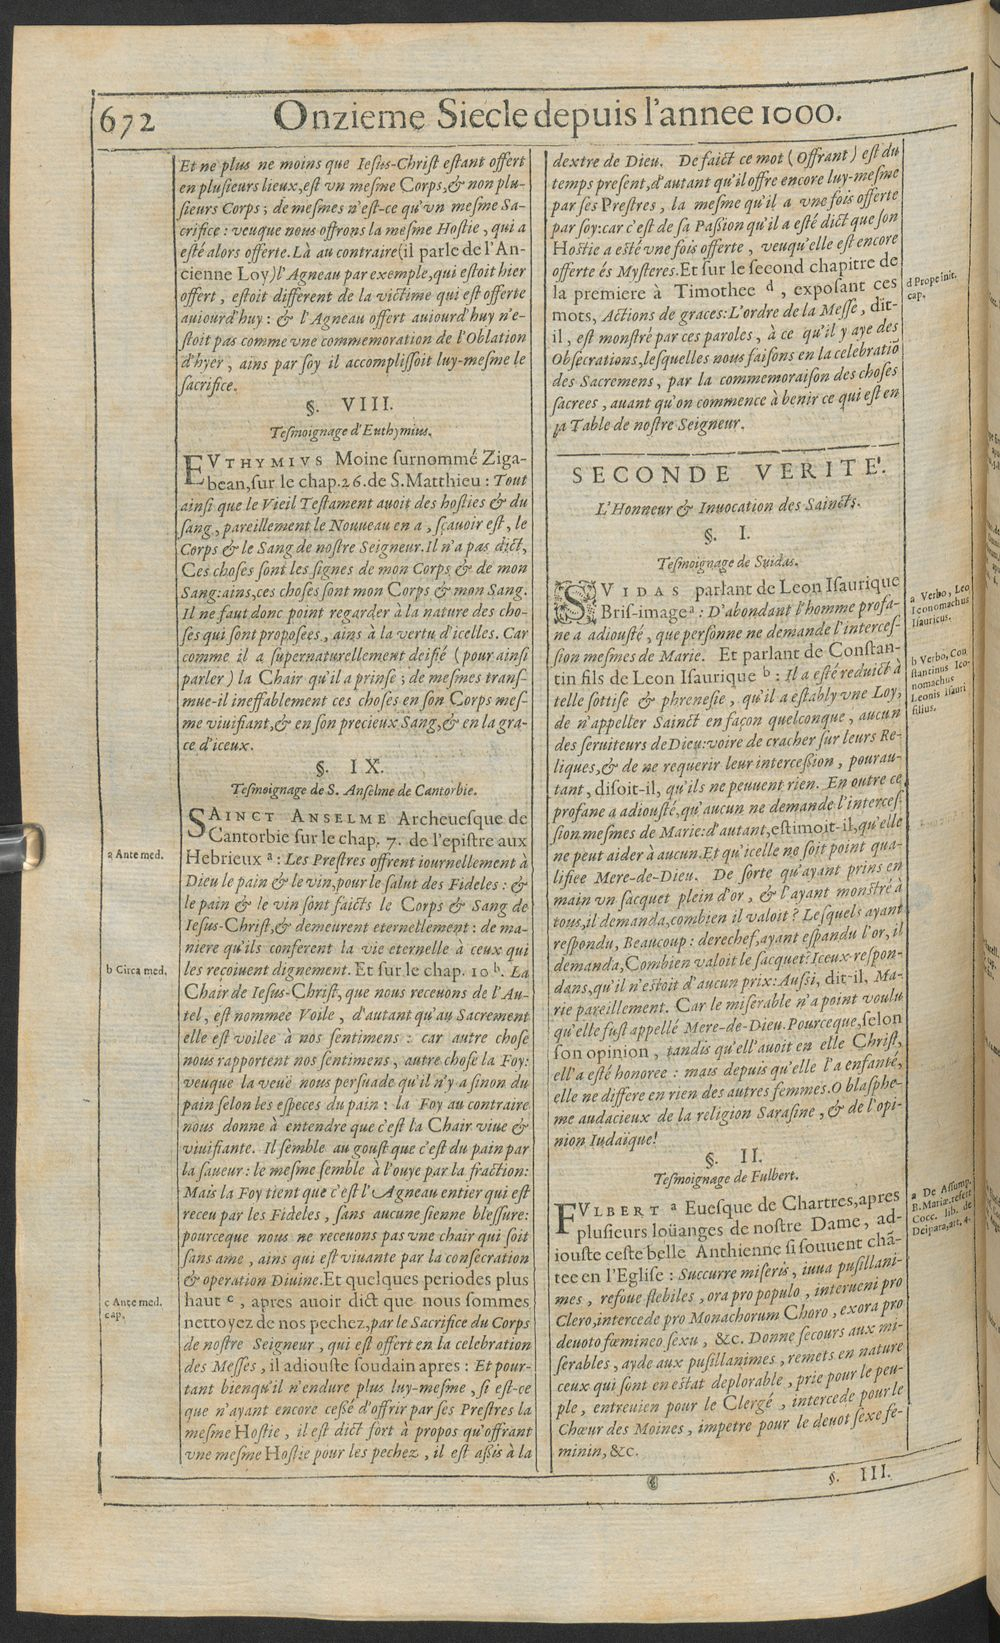 672
Onzieme Siecle depuis l'annee 1000.
Et ne plus ne moins que Iesus-Christ estant offert
en plusieurs lieux, est vn mesme Corps, & non plu-
sieurs Corps ; de mesmes n'est-ce qu'vn mesme Sa-
crifice : veuque nous offrons la mesme Hostie, qui a
esté alors offerte. Là au contraire (il parle de l'An-
cienne Loy) l'Agneau par exemple, qui estoit hier
offert , estoit different de la victime qui est offerte
auiourd'huy : & l'Agneau offert auiourd'huy n'e-
stoit pas comme vne commemoration de l'Oblation
d'hyer , ains par soy il accomplissoit luy-mesme le
sacrifice.
§. VIII.
Tesmoignage d'Euthymius.
EVTHYMIVS Moine surnommé Ziga-
bean, sur le chap. 26. de S. Matthieu : Tout
ainsi que le Vieil Testament auoit des hosties & du
sang , pareillement le Nouueau en a , sçauoir est , le
Corps & le Sang de nostre Seigneur. Il n'a pas dict,
Ces choses sont les signes de mon Corps & de mon
Sang: ains, ces choses sont mon Corps & mon Sang.
Il ne faut donc point regarder à la nature des cho-
ses qui sont proposees , ains à la vertu d'icelles. Car
comme il a supernaturellement deifié (pour ainsi
parler) la Chair qu'il a prinse ; de mesmes trans-
mue-il ineffablement ces choses en son Corps mes-
me viuifiant, & en son precieux Sang, & en la gra-
ce d'iceux.
§. IX.
Tesmoignage de S. Anselme de Cantorbie.
SAINCT ANSELME Archeuesque de
Cantorbie sur le chap. 7. de l'epistre aux
Hebrieux a : Les Prestres offrent iournellement à
Dieu le pain & le vin, pour le salut des Fideles : &
le pain & le vin sont faicts le Corps & Sang de
Iesus-Christ, & demeurent eternellement : de ma-
niere qu'ils conferent la vie eternelle à ceux qui
les reçoiuent dignement. Et sur le chap. 10 b. La
Chair de Iesus-Christ, que nous receuons de l'Au-
tel , est nommee Voile , d'autant qu'au Sacrement
elle est voilee à nos sentimens : car autre chose
nous rapportent nos sentimens , autre chose la Foy:
veuque la veuë nous persuade qu'il n'y a sinon du
pain selon les especes du pain : la Foy au contraire
nous donne à entendre que c'est la Chair viue &
viuifiante. Il semble au goust que c'est du pain par
la saueur : le mesme semble à l'ouye par la fraction:
Mais la Foy tient que c'est l'Agneau entier qui est
receu par les Fideles , sans aucune sienne blessure:
pourceque nous ne receuons pas vne chair qui soit
sans ame , ains qui est viuante par la consecration
& operation Diuine. Et quelques periodes plus
haut c , apres auoir dict que nous sommes
nettoyez de nos pechez, par le Sacrifice du Corps
de nostre Seigneur , qui est offert en la celebration
des Messes , il adiouste soudain apres : Et pour-
tant bienqu'il n'endure plus luy-mesme , si est-ce
que n'ayant encore cessé d'offrir par ses Prestres la
mesme Hostie , il est dict fort à propos qu'offrant
vne mesme Hostie pour les pechez , il est assis à la
a Ante med.
b Circa med.
c Ante med.
cap.
dextre de Dieu. De faict ce mot (Offrant) est du
temps present, d'autant qu'il offre encore luy-mesme
par ses Prestres , la mesme qu'il a vne fois offerte
par soy: car c'est de sa Passion qu'il a esté dict que son
Hostie a esté vne fois offerte , veuqu'elle est encore
offerte és Mysteres. Et sur le second chapitre de
la premiere à Timothee d , exposant ces
mots, Actions de graces: L'ordre de la Messe , dit-
il , est monstré par ces paroles , à ce qu'il y aye des
Obsecrations, lesquelles nous faisons en la celebratiō
des Sacremens , par la commemoraison des choses
sacrees , auant qu'on commence à benir ce qui est en
la Table de nostre Seigneur.
SECONDE VERITE'.
L'Honneur & Inuocation des Saincts.
§. I.
Tesmoignage de Suidas.
SVIDAS parlant de Leon Isaurique
Bris-image a : D'abondant l'homme profa-
ne a adiousté , que personne ne demande l'interces-
sion mesmes de Marie. Et parlant de Constan-
tin fils de Leon Isaurique b : Il a esté reduict à
telle sottise & phrenesie , qu'il a estably vne Loy,
de n'appeller Sainct en façon quelconque , aucun
des seruiteurs de Dieu: voire de cracher sur leurs Re-
liques, & de ne requerir leur intercession , pourau-
tant , disoit-il, qu'ils ne peuuent rien. En outre ce
profane a adiousté, qu'aucun ne demande l'interces-
sion mesmes de Marie: d'autant, estimoit-il, qu'elle
ne peut aider à aucun. Et qu'icelle ne soit point qua-
lifiee Mere-de-Dieu. De sorte qu'ayant prins en
main vn sacquet plein d'or , & l'ayant monstré à
tous, il demanda, combien il valoit ? Lesquels ayant
respondu, Beaucoup : derechef, ayant espandu l'or, il
demanda, Combien valoit le sacquet? Iceux respon-
dans, qu'il n'estoit d'aucun prix: Aussi, dit-il, Ma-
rie pareillement. Car le miserable n'a point voulu
qu'elle fust appellé Mere-de-Dieu. Pourceque, selon
son opinion , tandis qu'ell' auoit en elle Christ,
ell' a esté honoree : mais depuis qu'elle l'a enfanté,
elle ne differe en rien des autres femmes. O blasphe-
me audacieux de la religion Sarasine , & de l'opi-
nion Iudaïque!
§. II.
Tesmoignage de Fulbert.
FVLBERT a Euesque de Chartres, apres
plusieurs loüanges de nostre Dame, ad-
iouste ceste belle Anthienne si souuent chā-
tee en l'Eglise : Succurre miseris , iuua pusillani-
mes , refoue flebiles , ora pro populo , interueni pro
Clero, intercede pro Monachorum Choro , exora pro
deuoto fœmineo sexu , &c. Donne secours aux mi-
serables , ayde aux pusillanimes , remets en nature
ceux qui sont en estat deplorable , prie pour le peu-
ple , entreuien pour le Clergé , intercede pour le
Chœur des Moines , impetre pour le deuot sexe fe-
minin, &c.
d Prope init.
cap.
a Verbo, Leo
Iconomachus
Isauricus.
b Verbo, Con
stantinus Ico-
nomachus
Leonis Isauri
filius.
a De Assump.
B. Mariæ. refert
Cocc. lib. de
Deipara, art. 4.
§. III.